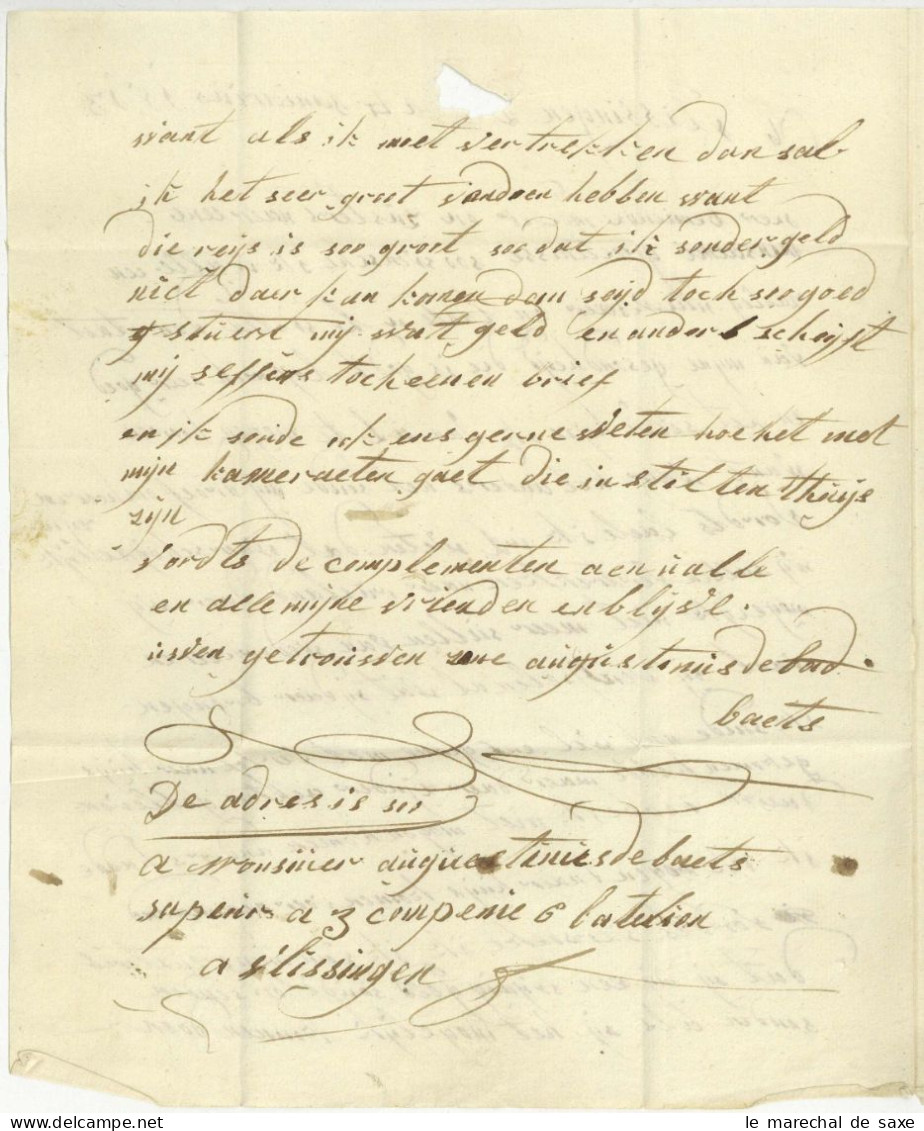 want als ik moet vertrekken dan sal
ik het seer groot vandoen hebben want
die reijs is soo groot soo dat ik sonder geld
niet daer kan komen dan seijd toch soo goed
stuert mij wat geld en anders schrijft
mij seffens toch eenen brief
en ik sonde ok ens gerne weten hoe het met
mijn kameraeten gaet die in stilten thuijs
zijn
vordts de complementen aen u alle
en alle mijne vrienden en blijve
uwen getrouwen augustinus de bad
baets
De adres is
a Monsiier auguestinus de baets
sapeur a 3 compenie 6 batelion
a vlissingen
le marechal de saxe